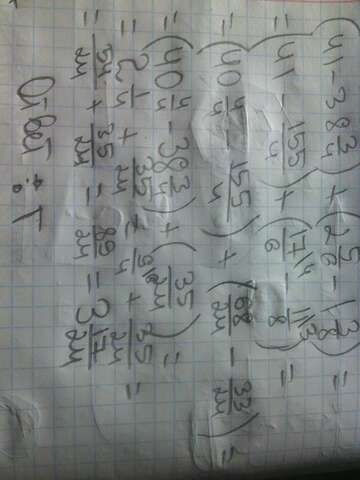 (41 - 38 3/4) + (2 5/6 - 1 3/8) =
= (41 - 155/4) + (17/6 \4 - 11/8 \3) =
= (40 4/4 - 155/4) + (68/24 - 33/24) =
= (40 4/4 - 38 3/4) + (35/24) =
= 2 1/4 + 35/24 = 9/4 \6 + 35/24 =
= 54/24 + 35/24 = 89/24 = 3 17/24
Ответ: Т